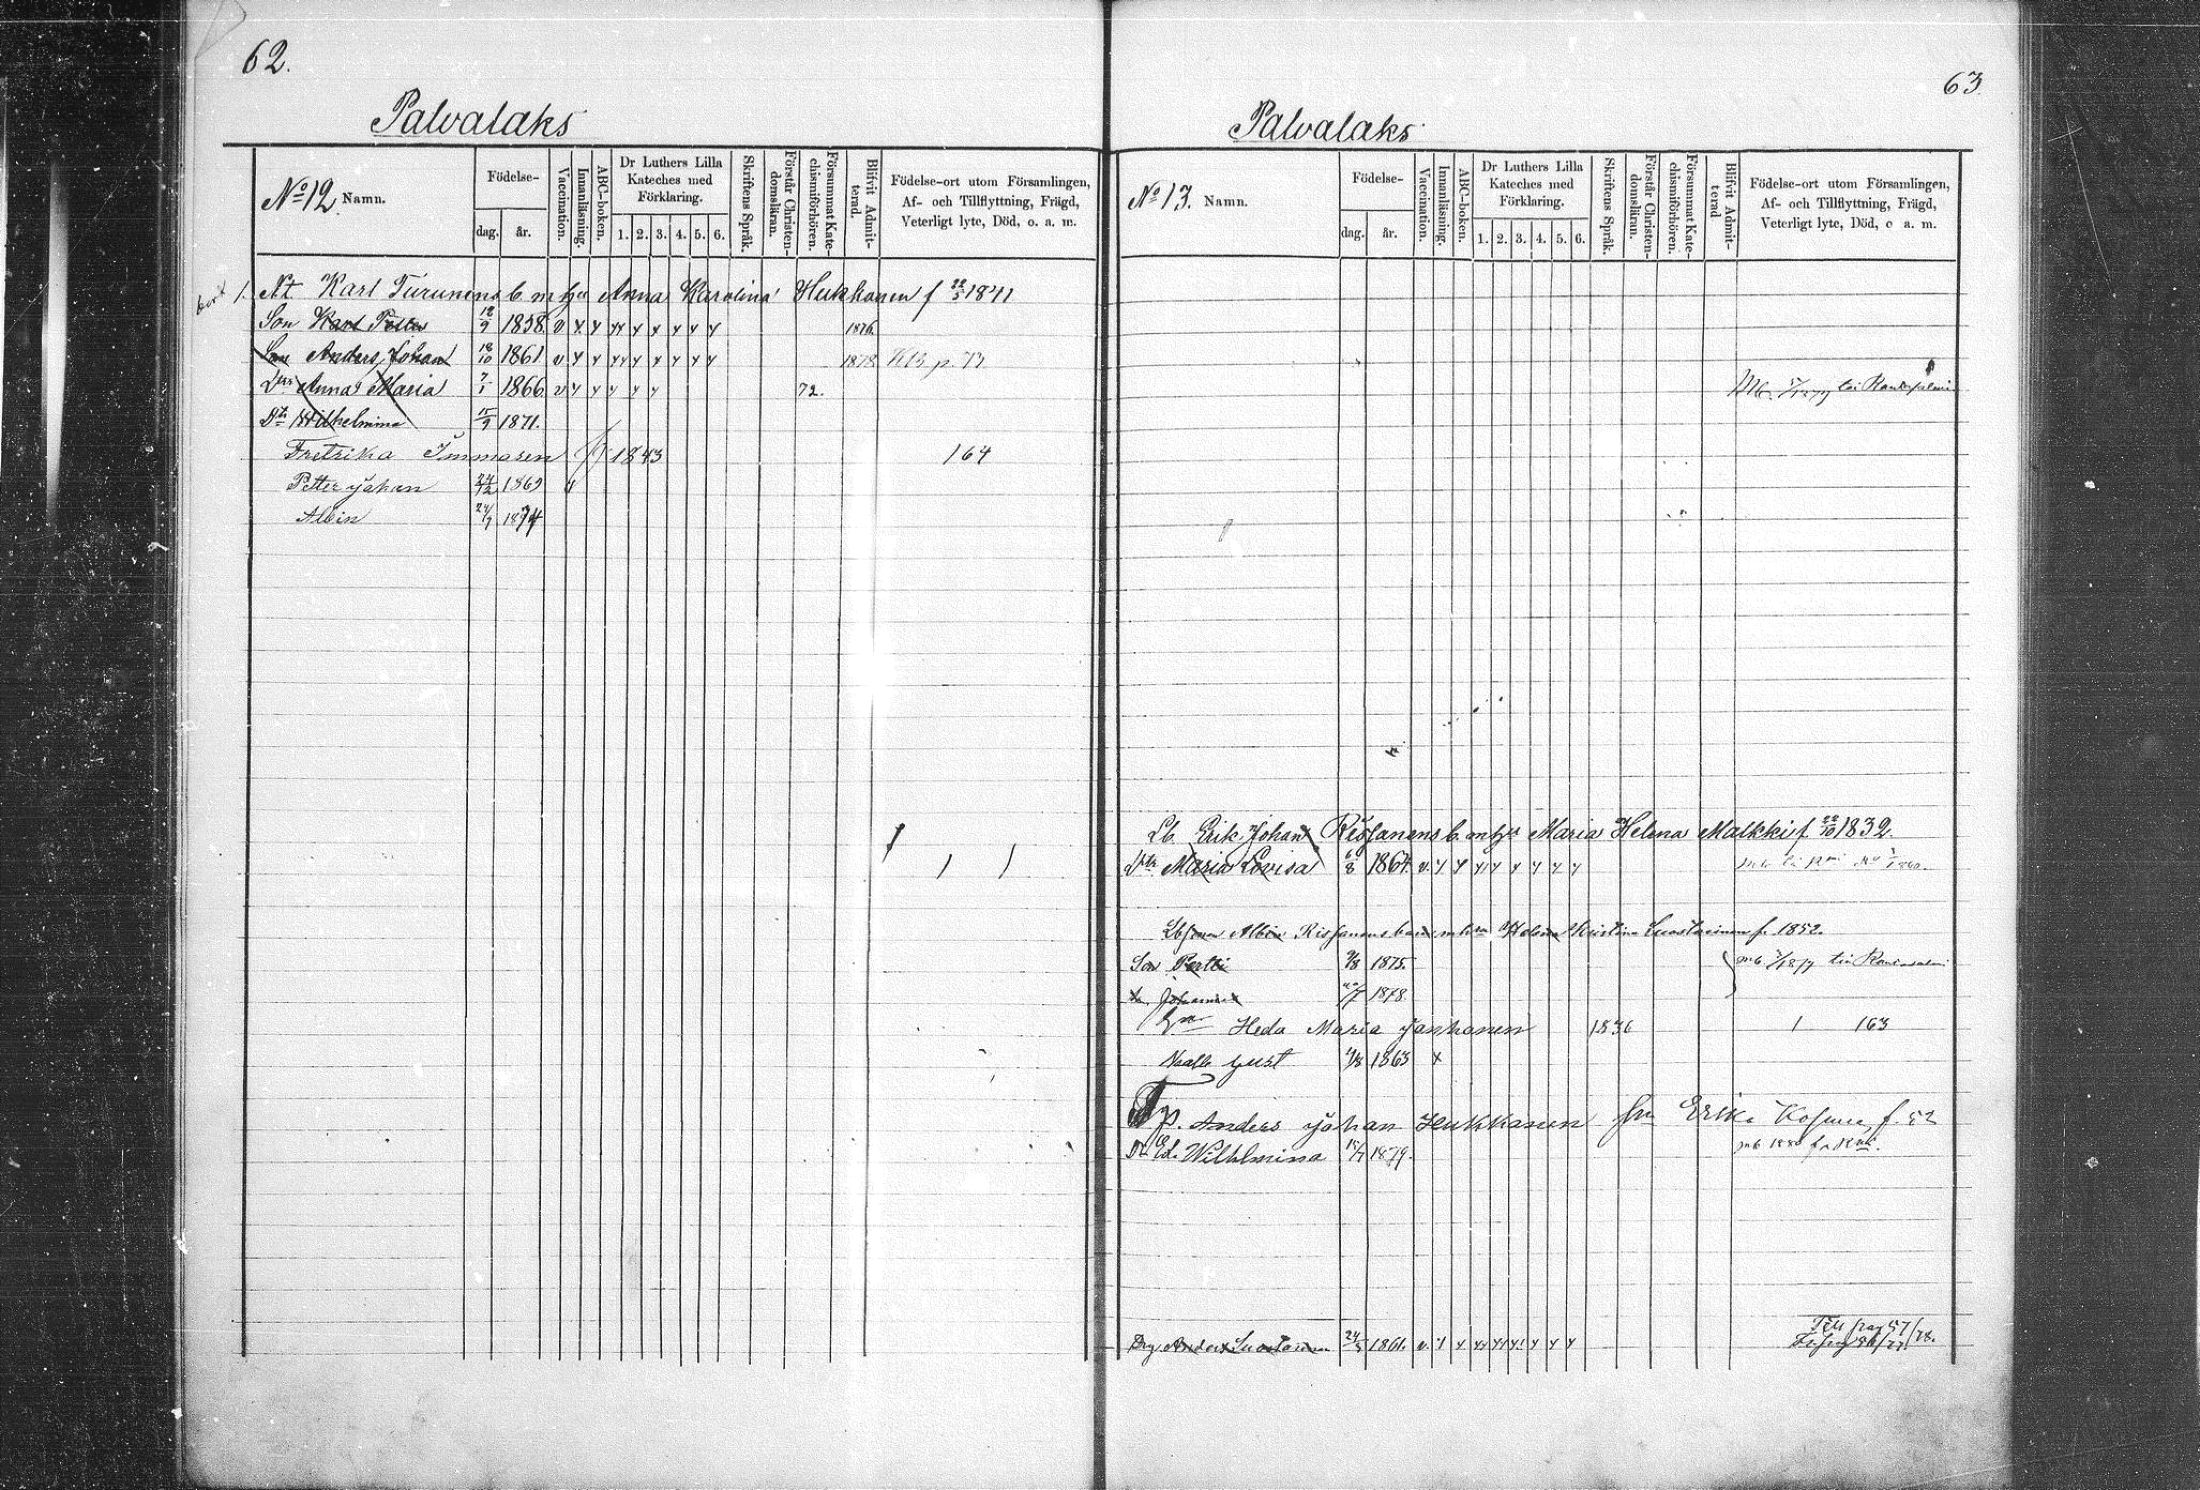 62.
Palvalaks
No 12. Namn.
Födelse-
dag. år.
Vaccination.
Innanläsning.
ABC-boken.
Dr Luthers Lilla
Kateches med
Förklaring.
1. 2. 3. 4. 5. 6.
Skriftens Språk.
Förstår Christen-
domsläran.
Försummat Kate-
chismiförhören.
Blifvit Admit-
terad.
Födelse-ort utom Församlingen,
Af- och Tillflyttning, Frägd,
Veterligt lyte, Död, o. a. m.
1. Karl Turunens Anna Karolina Hukkanen f 22/5 1841
Son Karl Petter 12/9 1858. v y y yy y y y y y 1876.
Son Anders Johan 18/10 1861 v y y yy y y y y y 1878 p. 73
Dtr Anna Maria 7/1 1866 v y y y y y 72.
Dtr Wilhelmina 15/9 1871.
Fretrika Immonen 1843 164
Petter Johan 24/12 1869
Albin 1874
63
Palvalaks
No 13. Namn.
Födelse-
dag. år.
Vaccination.
Innanläsning.
ABC-boken.
Dr Luthers Lilla
Kateches med
Förklaring.
1. 2. 3. 4. 5. 6.
Skriftens Språk.
Förstår Christen-
domsläran.
Försummat Kate-
chismiförhören.
Blifvit Admit-
terad
Födelse-ort utom Församlingen,
Af- och Tillflyttning, Frägd,
Veterligt lyte, Död, o a. m.
Lb. Erik Johan Maria Helena Malkki f. 22/10 1832.
Dtr Maria Lovisa 1864. v. y y yy y y y y
Albin Kristina f. 1852.
Son Pertti 9/8 1875.
Johannes 1878.
Heda Maria Janhonen 1836 1 163
Just 1863 x
Anders Johan Hukkanen Erika f. 52
Dr Ed. Wilhlmina 15/7 1879.
Drg Anders 24/5 1861. v. y y yy yy y y y y